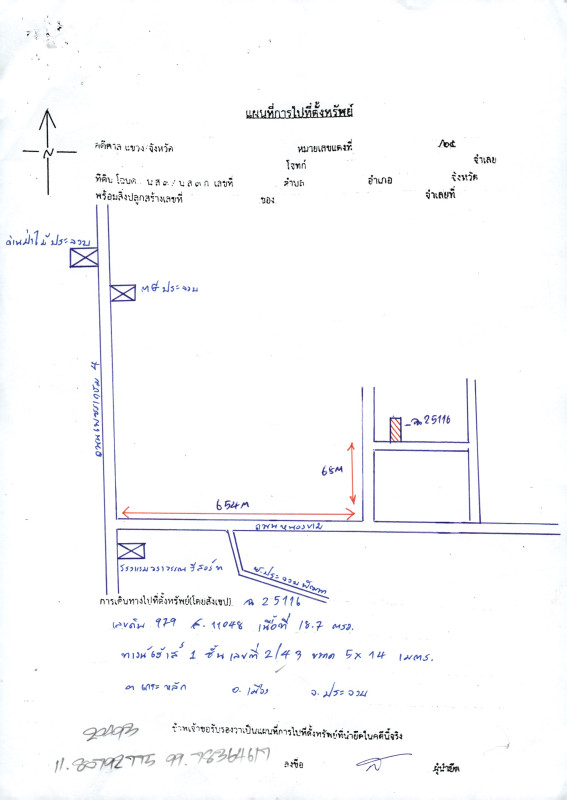 แผนที่การไปที่ตั้งทรัพย์
N
คดีศาล แขวง/จังหวัด หมายเลขแดงที่ /๒๕
โจทก์ จำเลย
ที่ดิน โฉนด น.ส.๓ / น.ส.๓ ก. เลขที่ ตำบล อำเภอ จังหวัด
พร้อมสิ่งปลูกสร้างเลขที่ ของ จำเลยที่
ค้าไม้ประจวบ
ประจวบ
ถนนเพชรเกษม 4
ฉ 25116
68 M
654 M
ถนนหนองขาม
โรงแรม รีสอร์ท
ซ.ประจวบ
การเดินทางไปที่ตั้งทรัพย์(โดยสังเขป) ฉ 25116
เลขดิน 979 ส. 11048 เนื้อที่ 18.7 ตรว.
ทาวน์เฮ้าส์ 1 ชั้น เลขที่ 2/43 ขนาด 5 x 14 เมตร.
ต เกาะหลัก อ. เมือง จ. ประจวบ
ข้าพเจ้าขอรับรองว่าเป็นแผนที่การไปที่ตั้งทรัพย์ที่นำยึดในคดีนี้จริง
11.85792775 99.78364617
ลงชื่อ ผู้นำยึด